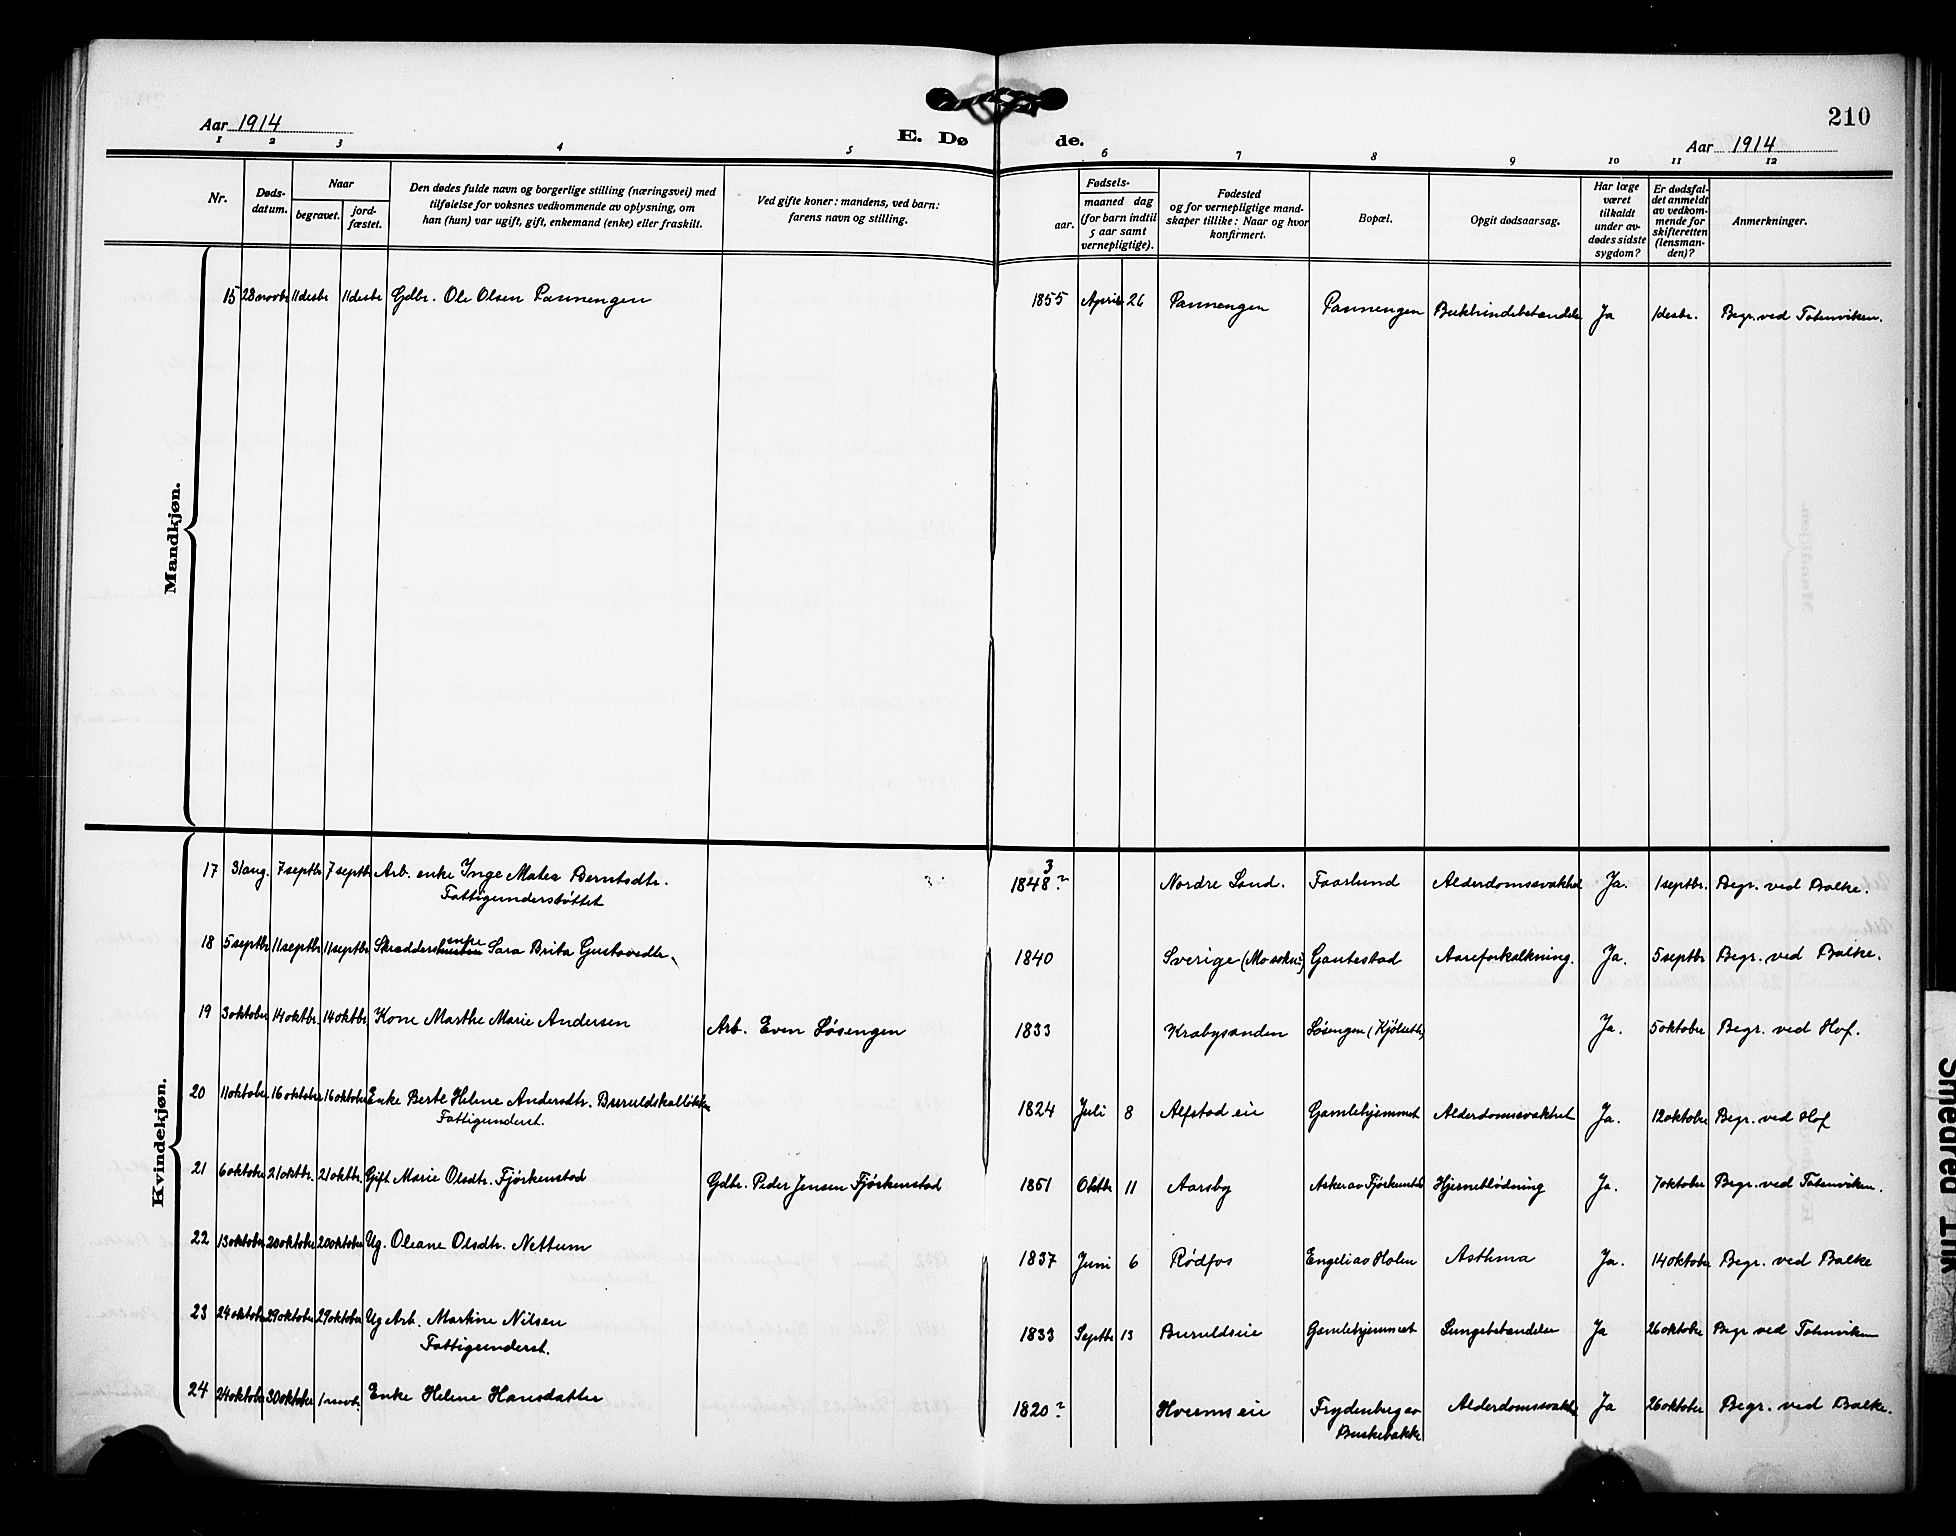 210
Aar 1914
E. Dø
de.
Aar 1914
1 2 3 4 5 6 7 8 9 10 11 12
Nr.
Døds-
datum.
Naar
begravet.
jord-
fæstet.
Den dødes fulde navn og borgerlige stilling (næringsvei) med
tilføielse for voksnes vedkommende av oplysning, om
han (hun) var ugift, gift, enkemand (enke) eller fraskilt.
Ved gifte koner: mandens, ved barn:
farens navn og stilling.
Fødsels-
aar.
maaned dag
(for barn indtil
5 aar samt
vernepligtige).
Fødested
og for vernepligtige mand-
skaper tillike: Naar og hvor
konfirmert.
Bopæl.
Opgit dødsaarsag.
Har læge
været
tilkaldt
under av-
dødes sidste
sygdom?
Er dødsfal-
det anmeldt
av vedkom-
mende for
skifteretten
(lensman-
den)?
Anmerkninger.
Mandkjøn.
15 28 novbr 11 desbr 11 desbr Gdbr. Ole Olsen Pannengen 1855 April 26 Pannengen Pannengen Bukhindebetændelse Ja 1 desbr. Begr. ved Totenviken.
Kvindekjøn.
17 31 aug. 7 septbr 7 septbr Arb. enke Inge Matea Berntsdtr. 1848? 3 Nordre Sand. Faarlund Alderdomssvakhed Ja. 1 septbr. Begr. ved Balke.
Fattigunderstøttet
18 5 septbr 11 septbr 11 septbr Skrædders enke Sara Brita Gustavsdtr. 1840 Sverige (Mo sokn) Gautestad Aareforkalkning. Ja. 5 septbr Begr. ved Balke.
19 3 oktober 14 oktbr. 14 oktbr. Kone Marthe Marie Andersen Arb. Even Løsengen 1833 Krabysanden Løsengen (Kjølseth) Ja. 5 oktober Begr. ved Hof.
20 11 oktober 16 oktober 16 oktober Enke Berte Helene Andersdtr. Buruldskalløkken 1824 Juli 8 Alfstad eie Gamlehjemmet Alderdomssvakhet Ja. 12 oktober Begr. ved Hof
Fattigunderst.
21 6 oktober 21 oktbr. 21 oktbr. Gift Marie Olsdtr. Fjørkenstad Gdbr. Peder Jensen Fjørkenstad 1851 Oktbr 11 Aarsby Asker av Fjørkenstad Hjerneblødning Ja. 7 oktober Begr. ved Totenviken.
22 13 oktober 20 oktober 20 oktober Ug. Oleane Olsdtr. Nettum 1837 Juni 6 Rødfos Engeli av Holen Asthma Ja. 14 oktober Begr. ved Balke
23 24 oktober 29 oktober 29 oktober Ug Arb. Martine Nilsen 1833 Septbr 13 Buruldseie Gamlehjemmet Lungebetændelse Ja 26 oktober Begr ved Totenviken
Fattigunderst.
24 24 oktober 30 oktober 1 novbr. Enke Helene Hansdatter 1820? Hveems eie Frydenberg av Alderdomssvakhet Ja 26 oktober Begr. ved Balke.
Buskebakke